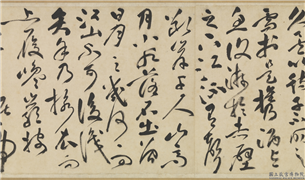 需於是攜酒與
魚復游於赤壁
之下江流有聲
斷岸千尺山高
月小水落石出曾
日月之幾何而
江山不可復識
矣予乃攝衣而
上履巉巖披